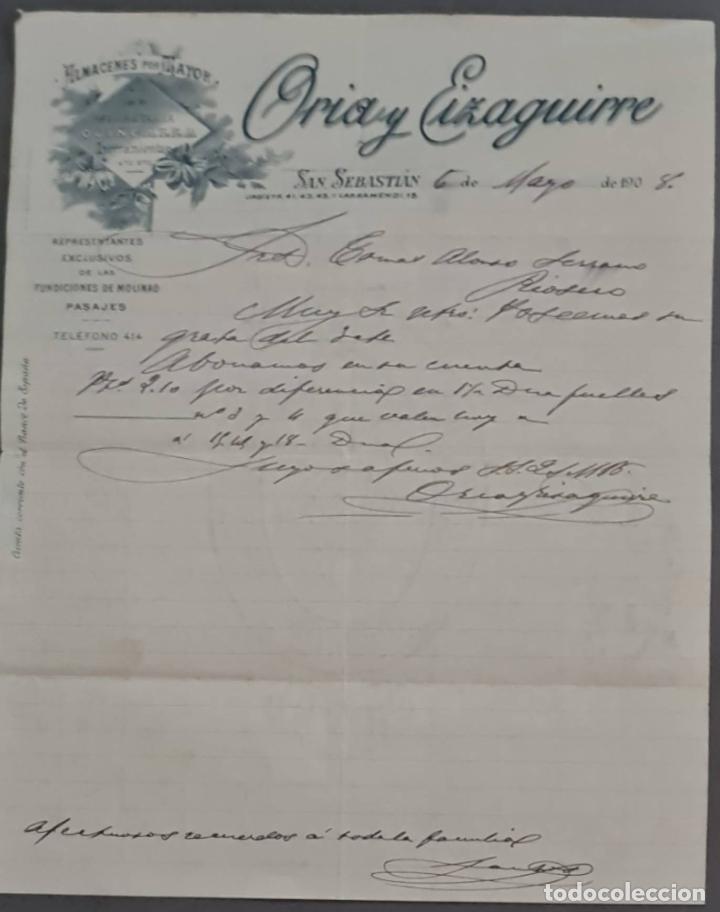 ALMACENES POR MAYOR
DE
FERRETERIA
QUINCALLERIA
Herramientas
ETC. ETC.
Oria y Eizaguirre
SAN SEBASTIÁN 6 de Mayo de 1908.
URBIETA 41, 43, 45, Y LARRAMENDI, 15.
REPRESENTANTES
EXCLUSIVOS
DE LAS
FUNDICIONES DE MOLINAO
PASAJES
TELÉFONO 414
Cuenta corriente con el Banco de España
Alonso Serrano
Rioseco
Muy Sr. ntro: Poseemos su
grata del
Abonamos en su cuenta
Pts 2.10 por diferencia en Dna fuelles
nº 3 y 4 que valen hoy a
y 18- Dna.
Suyos afmos S.S. Q.S.M.B.
Oria y Eizaguirre
Afectuosos recuerdos á toda la familia
todocoleccion